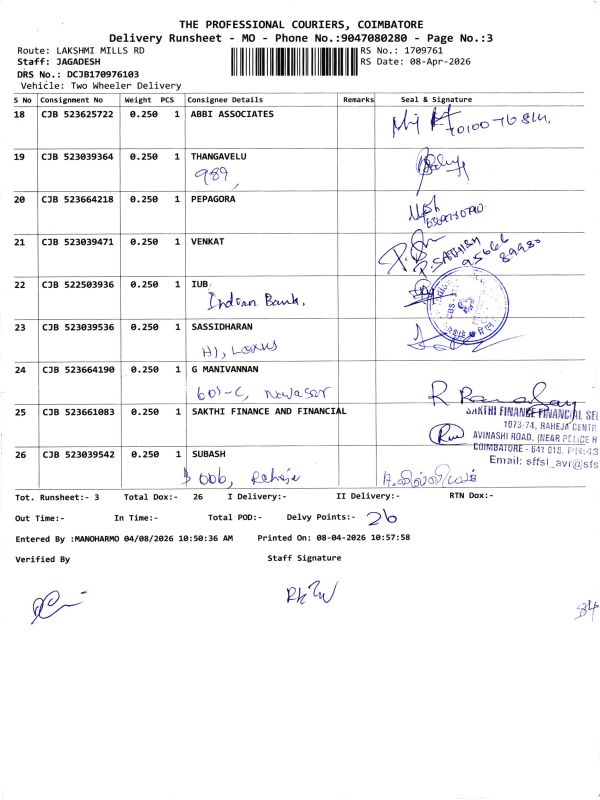 THE PROFESSIONAL COURIERS, COIMBATORE
Delivery Runsheet - MO - Phone No.:9047080280 - Page No.:3
Route: LAKSHMI MILLS RD
RS No.: 1709761
Staff: JAGADESH
RS Date: 08-Apr-2026
DRS No.: DCJB170976103
Vehicle: Two Wheeler Delivery
S No Consignment No Weight PCS Consignee Details Remarks Seal & Signature
18 CJB 523625722 0.250 1 ABBI ASSOCIATES
19 CJB 523039364 0.250 1 THANGAVELU
989,
20 CJB 523664218 0.250 1 PEPAGORA
21 CJB 523039471 0.250 1 VENKAT
P. SATHISH
95666
89980
22 CJB 522503936 0.250 1 IUB
Indian Bank.
23 CJB 523039536 0.250 1 SASSIDHARAN
H1, Lotus
24 CJB 523664190 0.250 1 G MANIVANNAN
601-C,
25 CJB 523661083 0.250 1 SAKTHI FINANCE AND FINANCIAL
SAKTHI FINANCE FINANCIAL SE
1073-74, RAHEJA CENTR
AVINASHI ROAD, (NEAR POLICE H
COIMBATORE - 641 018. PH:43
Email: sffsl_avr@sfs
26 CJB 523039542 0.250 1 SUBASH
006, Raheje
Tot. Runsheet:- 3 Total Dox:- 26 I Delivery:- II Delivery:- RTN Dox:-
Out Time:- In Time:- Total POD:- Delvy Points:- 26
Entered By :MANOHARMO 04/08/2026 10:50:36 AM Printed On: 08-04-2026 10:57:58
Verified By Staff Signature